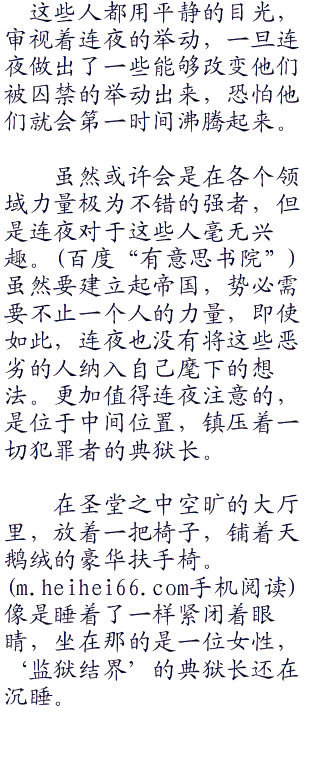 这些人都用平静的目光，
审视着连夜的举动，一旦连
夜做出了一些能够改变他们
被囚禁的举动出来，恐怕他
们就会第一时间沸腾起来。
虽然或许会是在各个领
域力量极为不错的强者，但
是连夜对于这些人毫无兴
趣。(百度“有意思书院”)
虽然要建立起帝国，势必需
要不止一个人的力量，即使
如此，连夜也没有将这些恶
劣的人纳入自己麾下的想
法。更加值得连夜注意的，
是位于中间位置，镇压着一
切犯罪者的典狱长。
在圣堂之中空旷的大厅
里，放着一把椅子，铺着天
鹅绒的豪华扶手椅。
(m.heihei66.com手机阅读)
像是睡着了一样紧闭着眼
睛，坐在那的是一位女性，
‘监狱结界’的典狱长还在
沉睡。